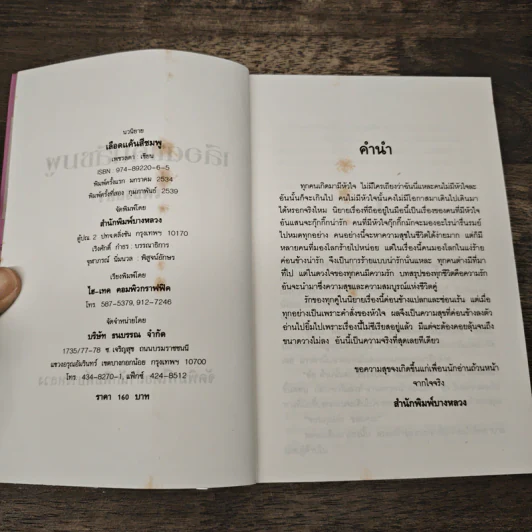 นวนิยาย
เลือดแค้นสีชมพู
เพชรลดา เขียน
ISBN 974-89220-6-5
พิมพ์ครั้งแรก มกราคม 2534
พิมพ์ครั้งที่สอง กุมภาพันธ์ 2539
จัดพิมพ์โดย
สำนักพิมพ์บางหลวง
ตู้ปณ.2 ปทจ.ตลิ่งชัน กรุงเทพฯ 10170
เริงศักดิ์ กำธร บรรณาธิการ
จุฬาภรณ์ พิสูจน์อักษร
เรียงพิมพ์โดย
ไฮ-เทค คอมพิวกราฟฟิค
โทร 587-5379, 912-7246
จัดจำหน่ายโดย
บริษัท ธนบรรณ จำกัด
1735/77-78 ซ เจริญสุข ถนนบรมราชชนนี
แขวงอรุณอัมรินทร์ เขตบางกอกน้อย กรุงเทพฯ 10700
โทร. 434-8270-1, แฟ็กซ์ 424-8512
ราคา 160 บาท
คำนำ
ทุกคนเกิดมามีหัวใจ ไม่มีใครเถียงว่าอันนี้แหละคนไม่มีหัวใจละ
อันนั้นก็จะเกินไป คนไม่มีหัวใจนั้นคงไม่มีโอกาสมาเดินไปเดินมา
ได้หรอกจริงไหม นิยายเรื่องที่ถืออยู่ในมือนี้เป็นเรื่องของคนที่มีหัวใจ
อันแสนจะกุ๊กกิ๊กน่ารัก คนที่มีหัวใจกุ๊กกิ๊กมักจะมองอะไรน่ารื่นรมย์
ไปหมดทุกอย่าง คนอย่างนี้จะหาความสุขในชีวิตได้ง่ายมาก แต่ก็มี
หลายคนที่มองโลกร้ายไปหน่อย แต่ในเรื่องนี้คนมองโลกในแง่ร้าย
ค่อนข้างน่ารัก จึงเป็นการร้ายแบบน่ารักนั่นแหละ ทุกคนต่างมีที่มา
ที่ไป แต่ในดวงใจของทุกคนมีความรัก บทสรุปของทุกชีวิตคือความรัก
อันจะนำมาซึ่งความสุขและความสมบูรณ์แห่งชีวิตคู่
รักของทุกคู่ในนิยายเรื่องนี้ค่อนข้างแปลกและซ่อนเร้น แต่เมื่อ
ทุกอย่างเป็นเพราะคำสั่งของหัวใจ ผลจึงเป็นความสุขที่ค่อนข้างลงตัว
อ่านไปยิ้มไปเพราะเรื่องนี้ไม่ซีเรียสอยู่แล้ว มีแต่จะต้องคอยลุ้นจนถึง
ขนาดวางไม่ลง อันนี้เป็นความจริงที่สุดเลยทีเดียว
ขอความสุขจงเกิดขึ้นแก่เพื่อนนักอ่านถ้วนหน้า
จากใจจริง
สำนักพิมพ์บางหลวง